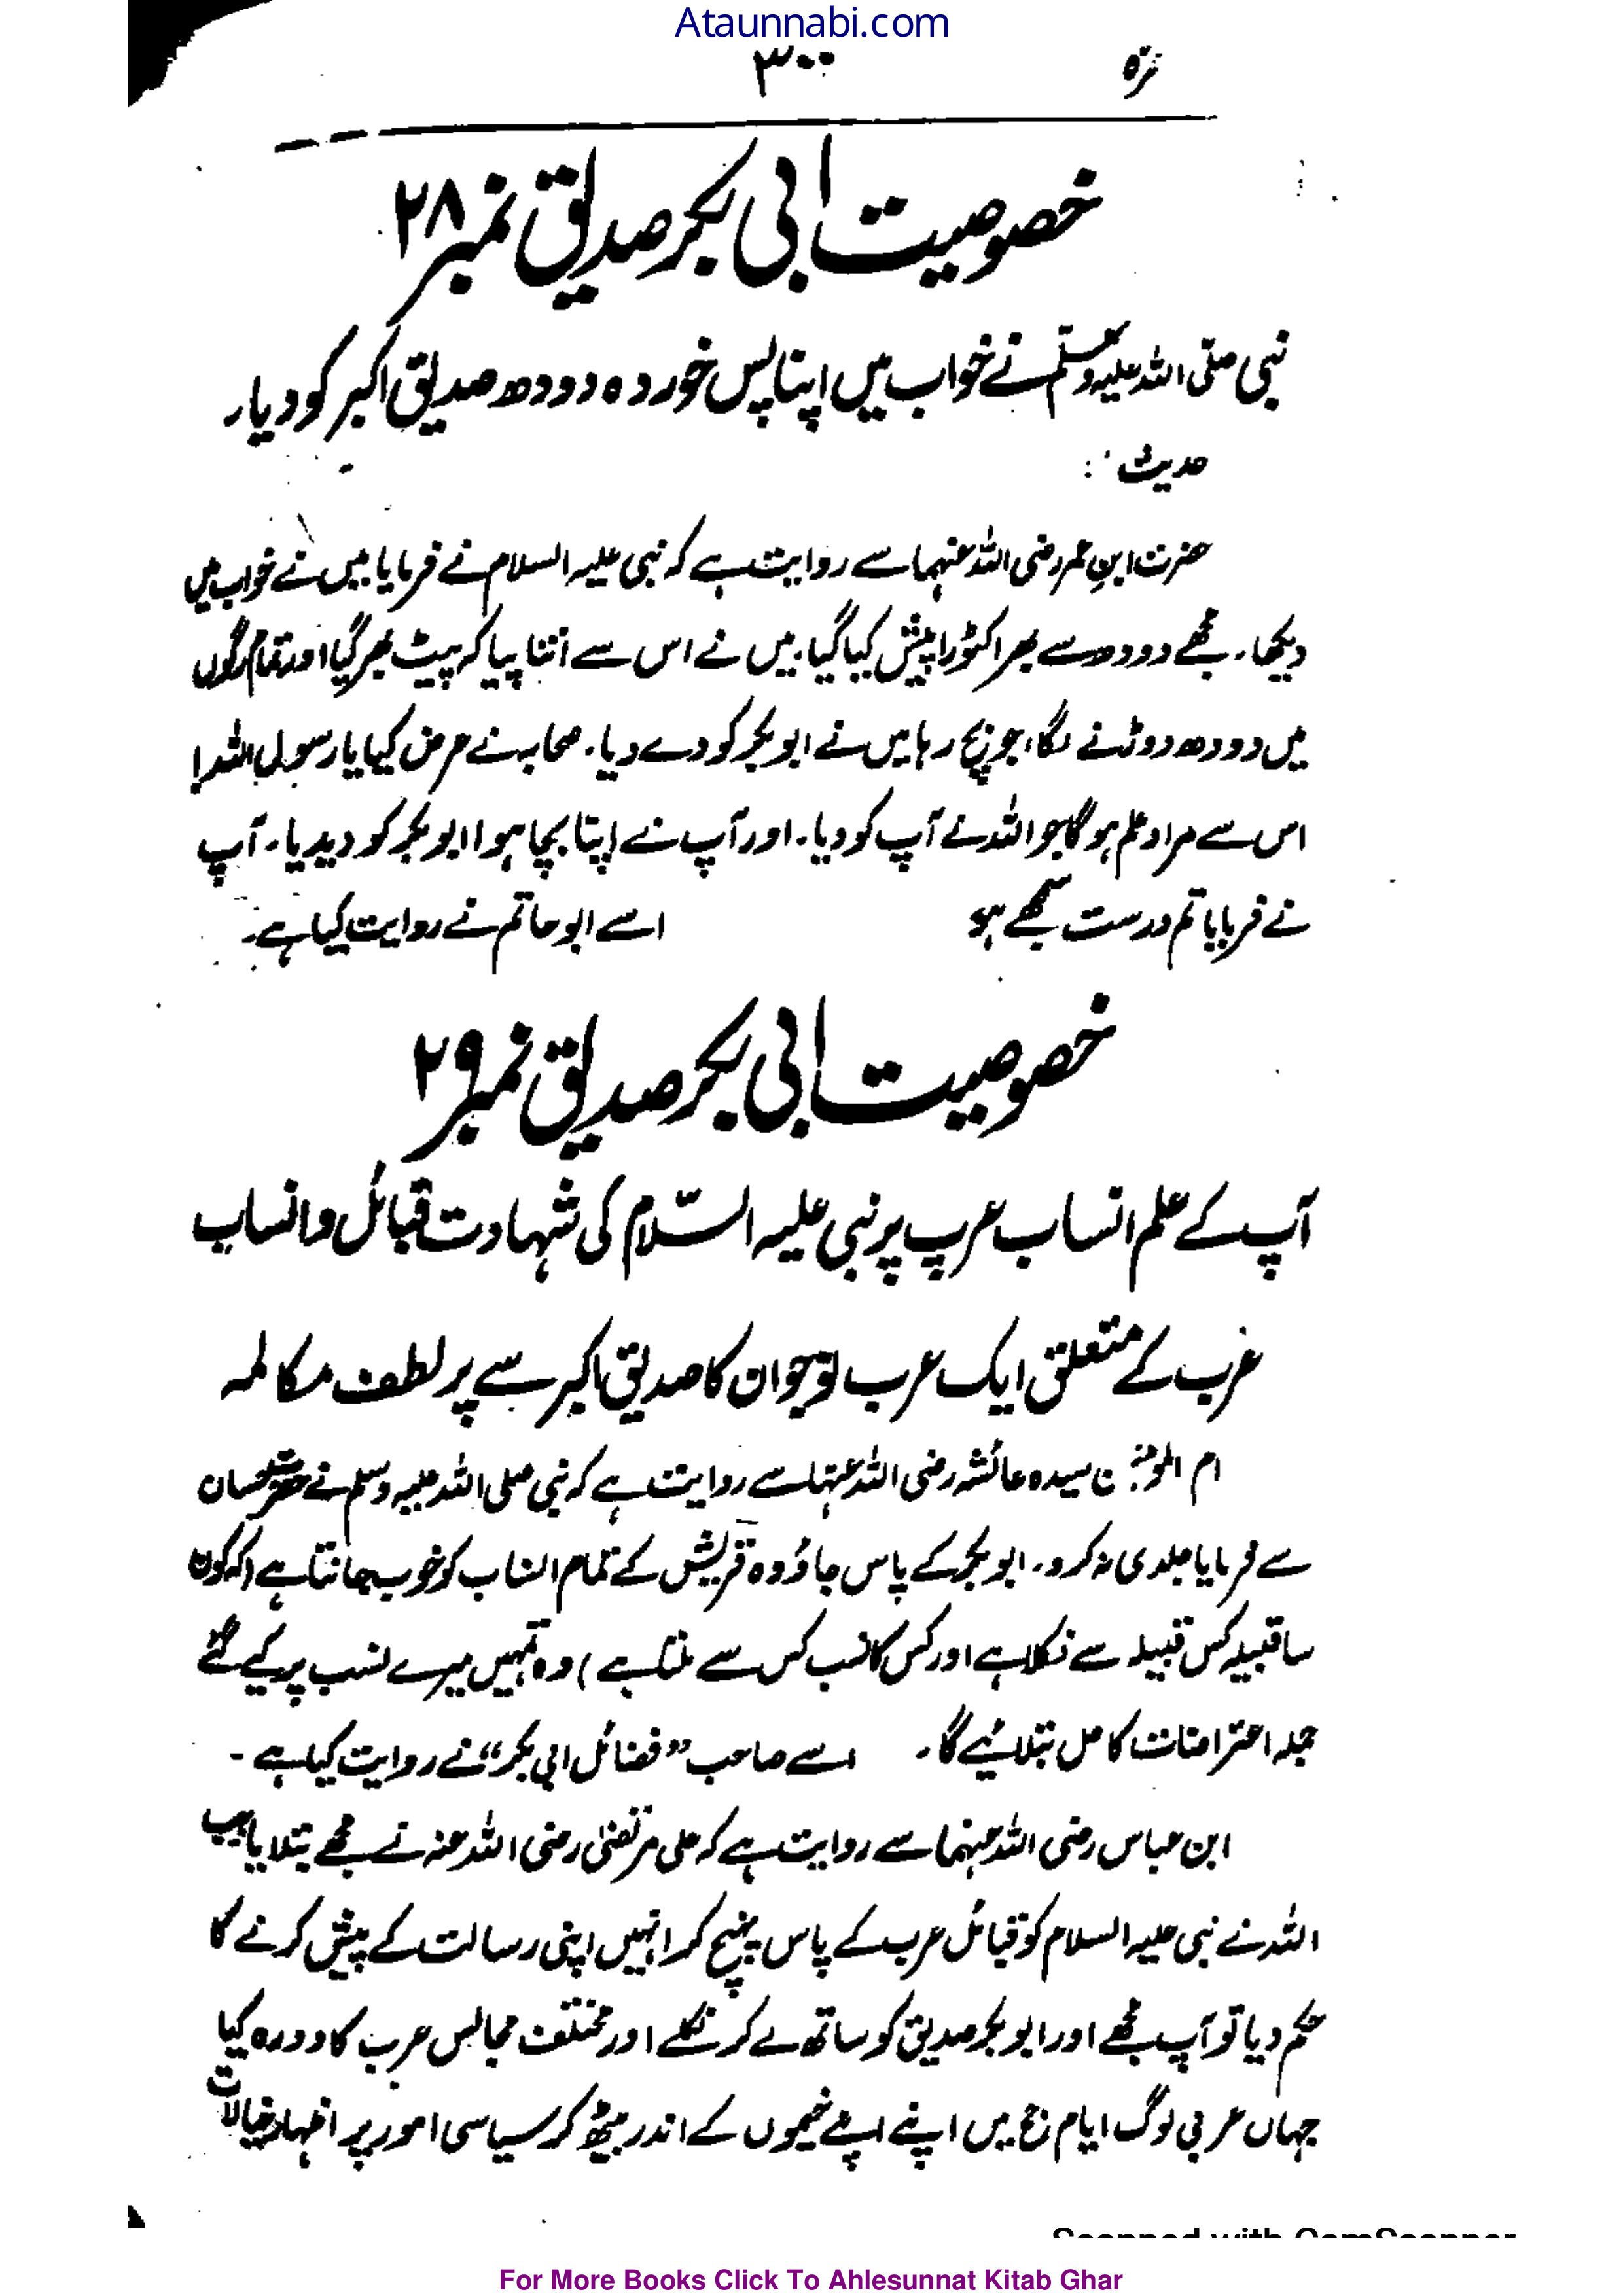 Ataunnabi.com
۳۰۰
خصوصیت ابی بکر صدیق نمبر ۲۸
نبی صلی اللہ علیہ وسلم نے خواب میں اپنا پس خوردہ دودھ صدیق اکبر کو دیا۔
حدیث :
حضرت ابنِ عمر رضی اللہ عنہما سے روایت ہے کہ نبی علیہ السلام نے فرمایا میں نے خواب میں
دیکھا۔ مجھے دودھ سے بھرا کٹورا پیش کیا گیا۔ میں نے اس سے اتنا پیا کہ پیٹ بھر گیا اور تمام رگوں
میں دودھ دوڑنے لگا، جو بچ رہا میں نے ابو بکر کو دے دیا۔ صحابہ نے عرض کیا یا رسول اللہ!
اس سے مراد علم ہو گا جو اللہ نے آپ کو دیا۔ اور آپ نے اپنا بچا ہوا ابو بکر کو دیدیا۔ آپ
نے فرمایا تم درست سمجھے ہو اسے ابو حاتم نے روایت کیا ہے۔
خصوصیت ابی بکر صدیق نمبر ۲۹
آپ کے علم انساب عرب پر نبی علیہ السّلام کی شہادت قبائل و انساب
عرب کے متعلق ایک عرب نوجوان کا صدیق اکبر سے پر لطف مکالمہ
ام المومنین سیدہ عائشہ رضی اللہ عنہا سے روایت ہے کہ نبی صلی اللہ علیہ وسلم نے حضرت حسان
سے فرمایا جلدی نہ کرو۔ ابو بکر کے پاس جاؤ وہ قریش کے تمام انساب کو خوب جانتا ہے (کہ کون
سا قبیلہ کس قبیلہ سے نکلا ہے اور کس کا نسب کس سے ملتا ہے) وہ تمہیں میرے نسب پر کیے گئے
جملہ اعتراضات کا حل بتلائیے گا۔ اسے صاحب "فضائل ابی بکر" نے روایت کیا ہے -
ابن عباس رضی اللہ عنہما سے روایت ہے کہ علی مرتضیٰ رضی اللہ عنہ نے مجھے بتلایا جب
اللہ نے نبی علیہ السلام کو قبائل عرب کے پاس پہنچ کر انہیں اپنی رسالت کے پیش کرنے کا
حکم دیا تو آپ مجھے اور ابو بکر صدیق کو ساتھ لے کر نکلے اور مختلف مجالس عرب کا دورہ کیا
جہاں عربی لوگ ایام حج میں اپنے اپنے خیموں کے اندر بیٹھ کر سیاسی امور پر اظہار خیالات
Scanned with CamScanner
For More Books Click To Ahlesunnat Kitab Ghar